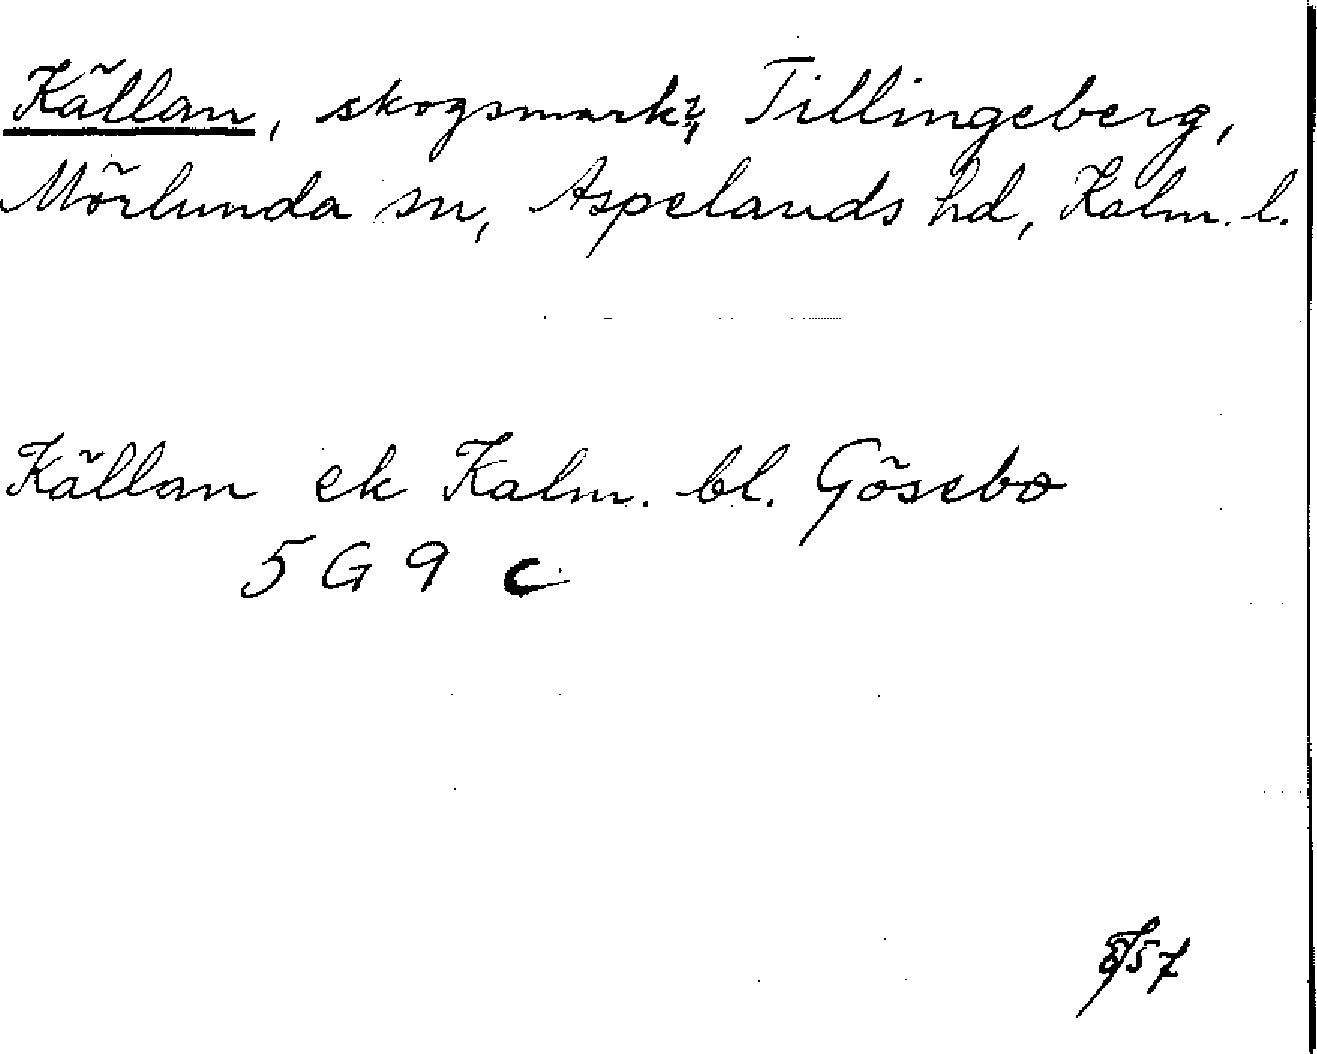 Källan, skogsmark, Tillingeberg,
Mörlunda sn, Aspelands hd, Kalm. l.
Källan ek Kalm. bl. Gösebo
5 G 9 c